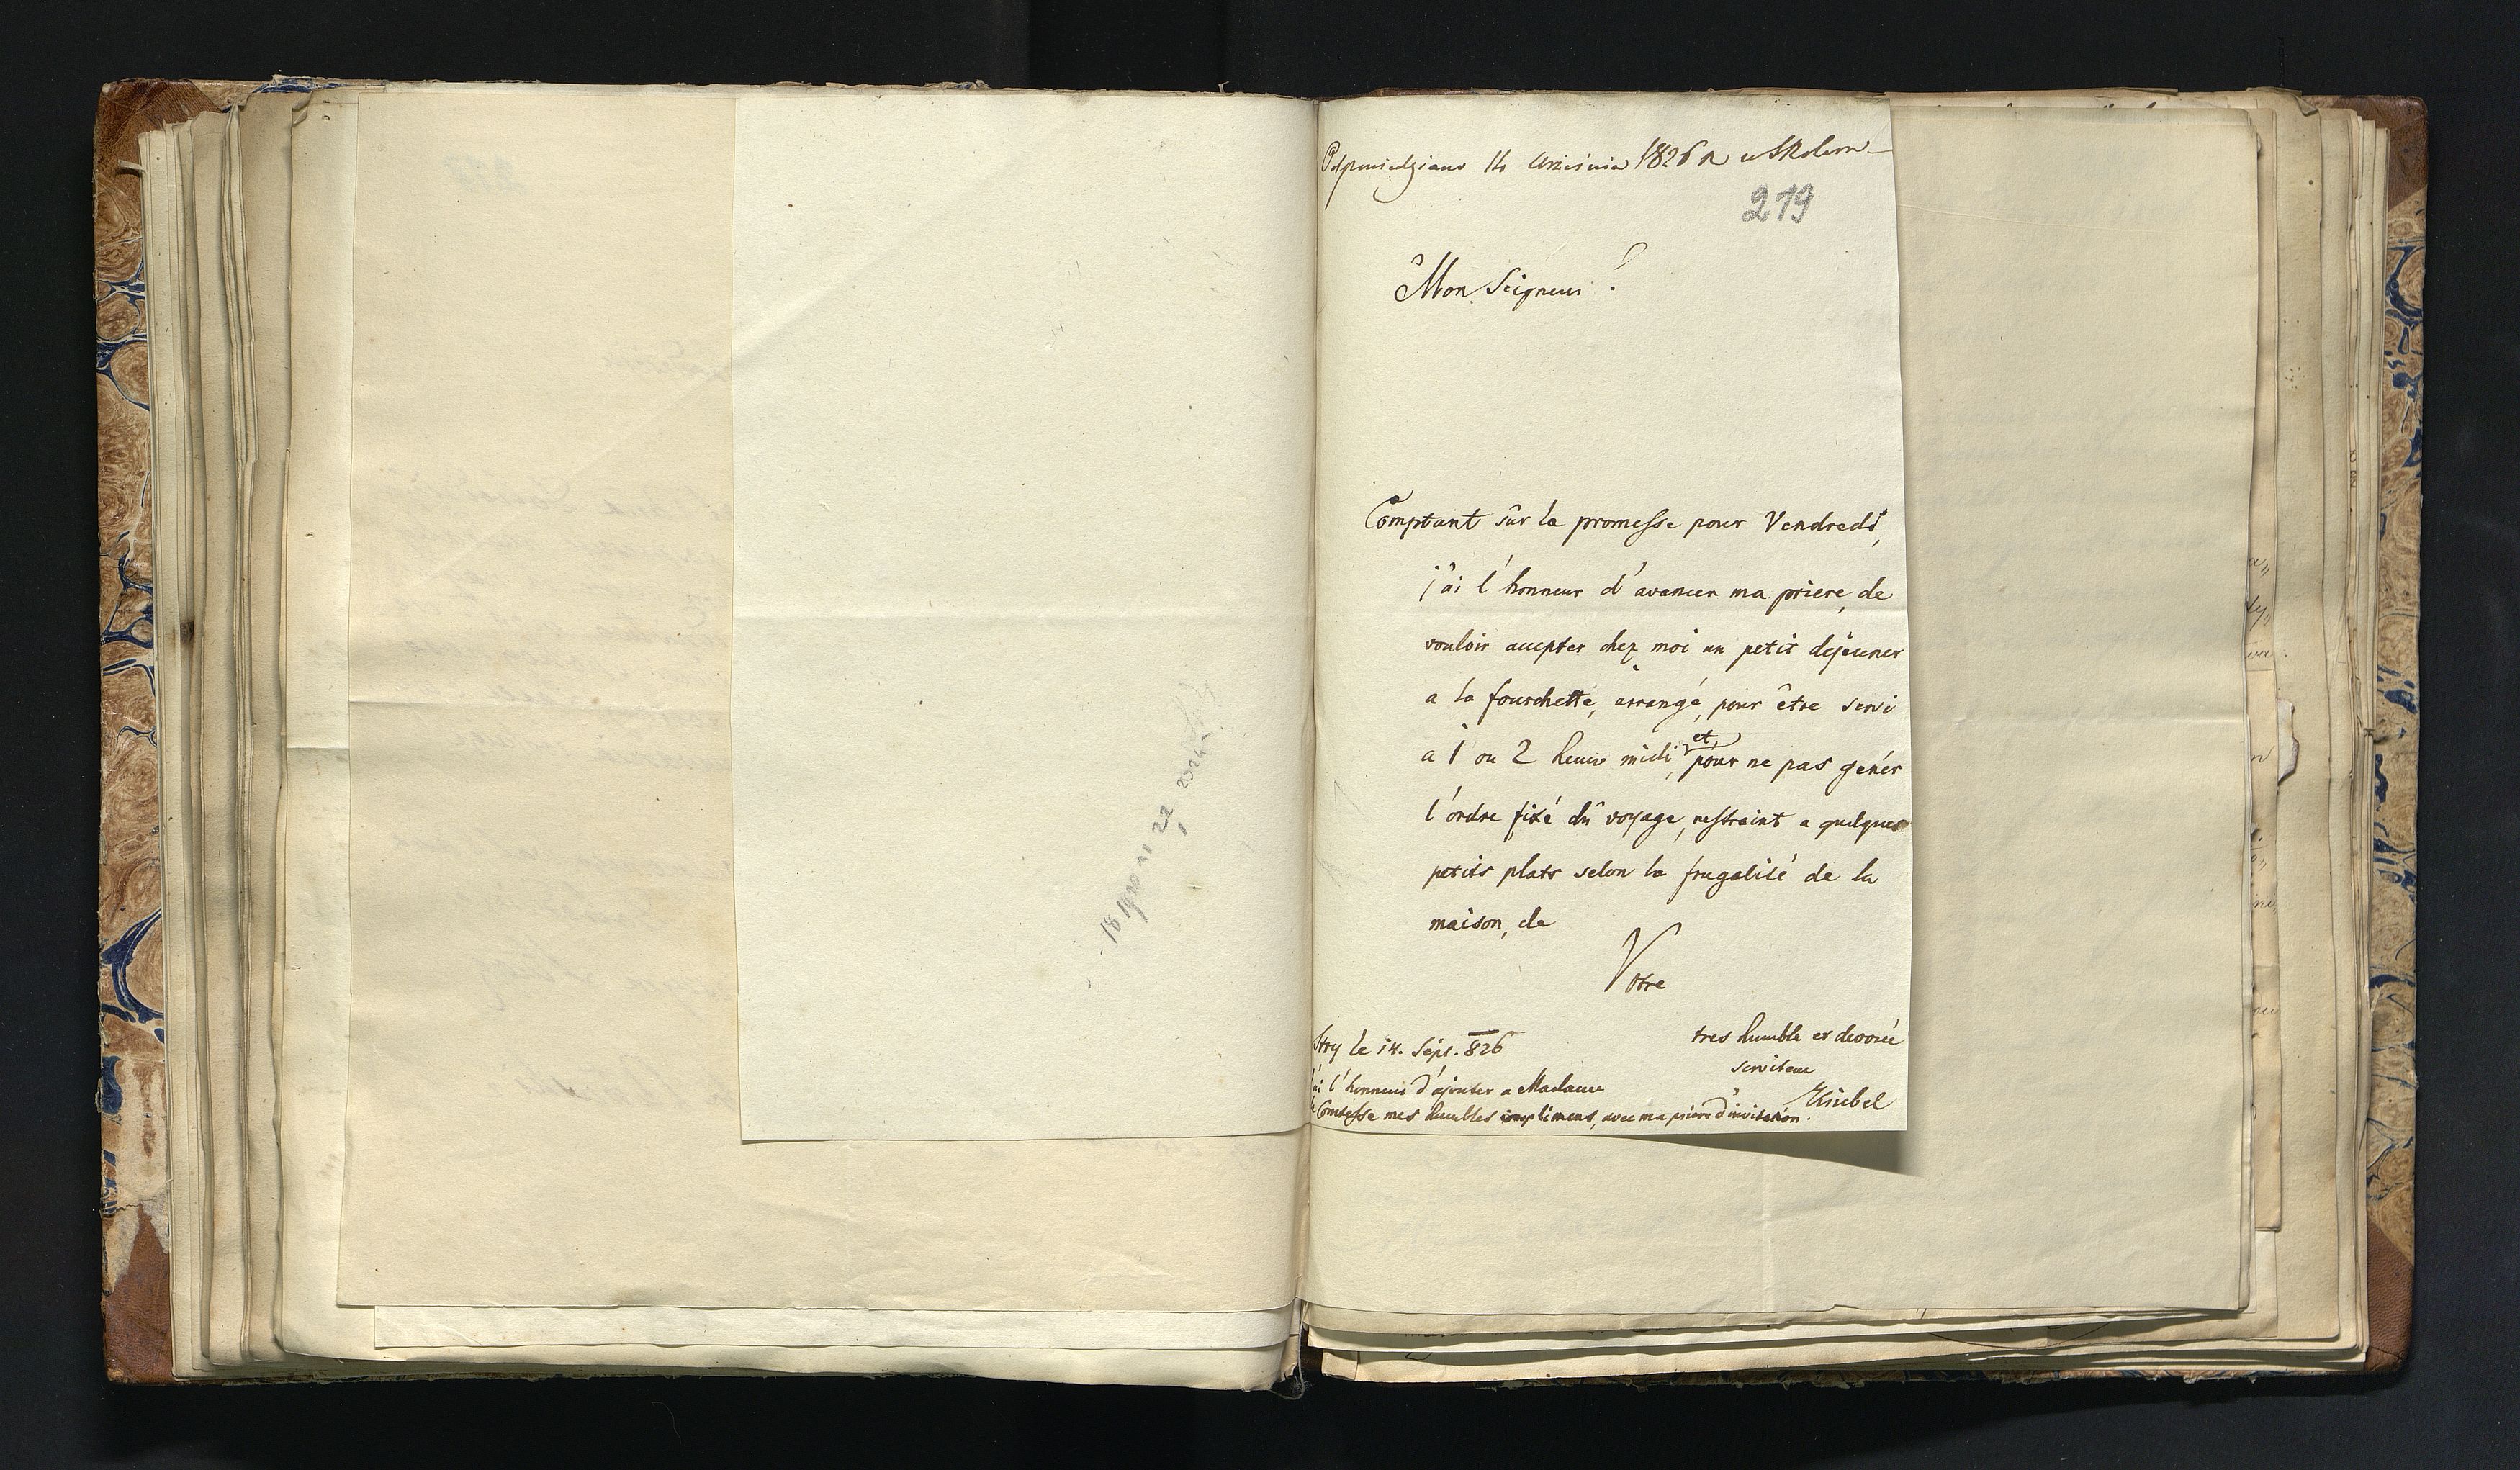 Odpowiedziano 14 Września 1826 r w Skolem
219
Mon Seigneur!
Comptant sûr la promesse pour Vendredi,
j'ai l'honneur d'avancer ma priere, de
vouloir accepter chez moi un petit dejeuner
a la fourchette, arrangé, pour être servi
a 1 ou 2 heure midi, et, pour ne pas gener
l'ordre fixé dû voyage, restraint a quelques
petits plats selon la frugalité de la
maison, de
Votre
tres humble et devoué
serviteur
Kriebel
Stry le 14. Sept. 826
j'ai l'honneur d'ajouter a Madame
la Comtesse mes humbles compliments, avec ma priere d'invitation.